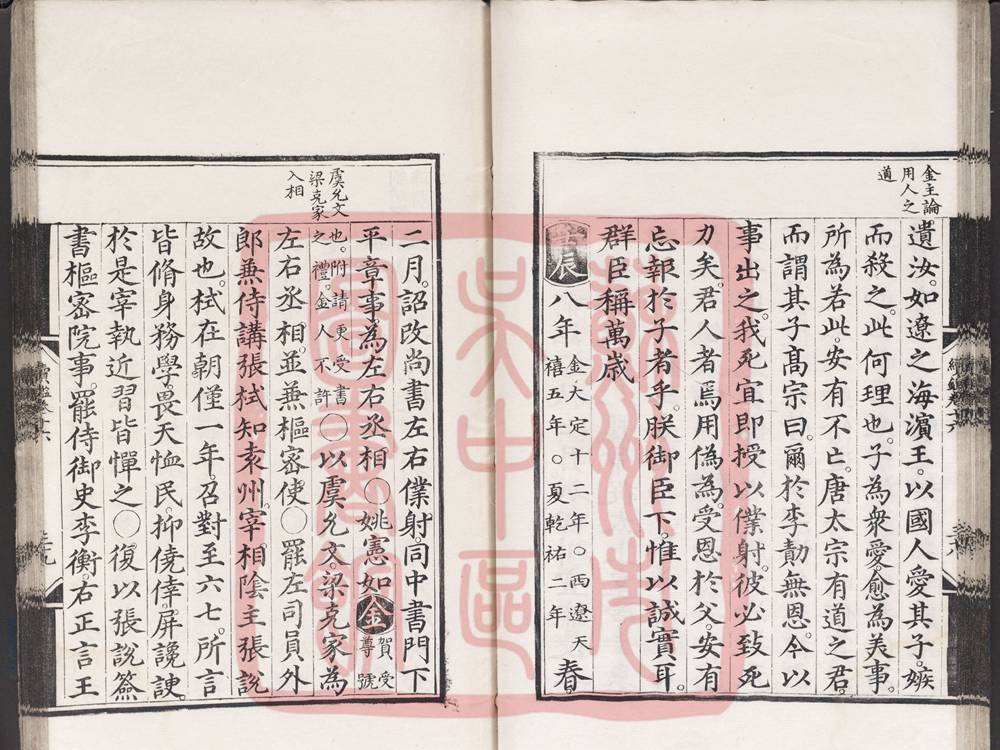 金主論
用人之
道
遺汝。如遼之海濱王。以國人愛其子。嫉
而殺之。此何理也。子為衆愛。愈為美事。
所為若此。安有不亡。唐太宗有道之君。
而謂其子髙宗曰。爾於李勣無恩。今以
事出之。我死宜即授以僕射。彼必致死
力矣。君人者。焉用偽為。受恩於父。安有
忘報於子者乎。朕御臣下。惟以誠實耳。
群臣稱萬歲
壬辰八年金大定十二年。西遼天禧五年。夏乾祐二年春
虞允文
梁克家
入相
二月。詔改尚書左右僕射。同中書門下
平章事為左右丞相○姚憲如金賀受尊號
也。附請更受書之禮。金人不許○以虞允文。梁克家為
左右丞相。並兼樞密使○罷左司員外
郎兼侍講張栻知袁州。宰相陰主張說
故也。栻在朝僅一年。召對至六七。所言
皆脩身務學。畏天恤民。抑僥倖。屏讒諛。
於是宰執近習皆憚之○復以張說簽
書樞密院事。罷侍御史李衡。右正言王
蘇州市
吳中區
圖書館